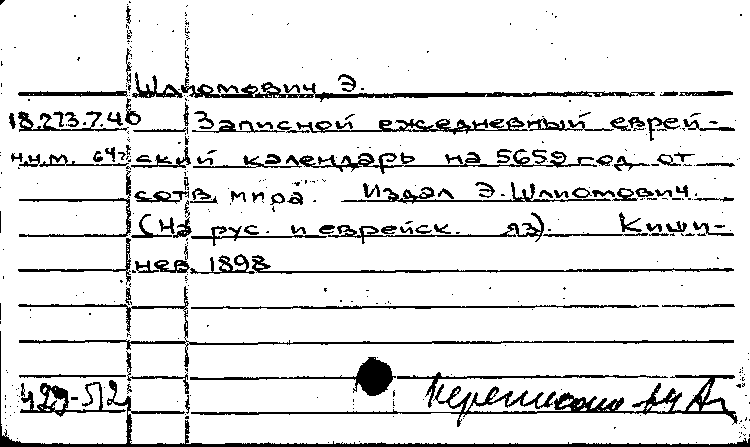 Шлиомович, Э.
18.273.7.40 Записной ежедневный еврей-
ский календарь на 5659 год от
сотв. мира. Издал Э. Шлиомович.
(На рус. и еврейск. яз). Киши-
нев. 1898
429-512 Переписано